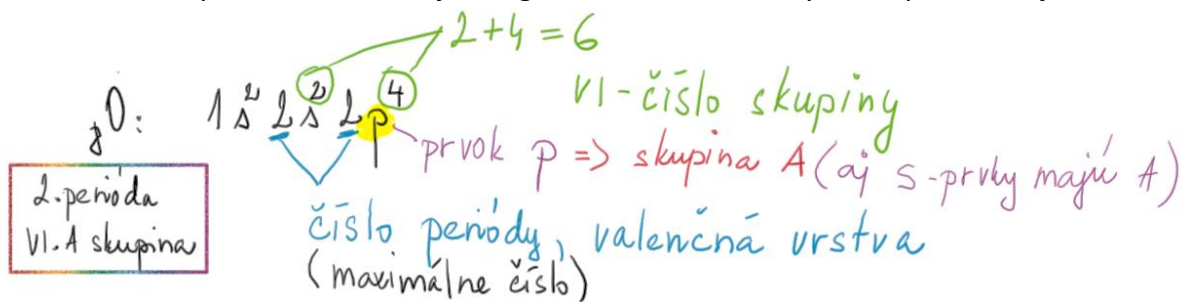 2+4=6
VI-číslo skupiny
₈O: 1s² 2s² 2p⁴
prvok p => skupina A (aj s-prvky majú A)
2. perióda
VI. A skupina
číslo periódy, valenčná vrstva
(maximálne číslo)